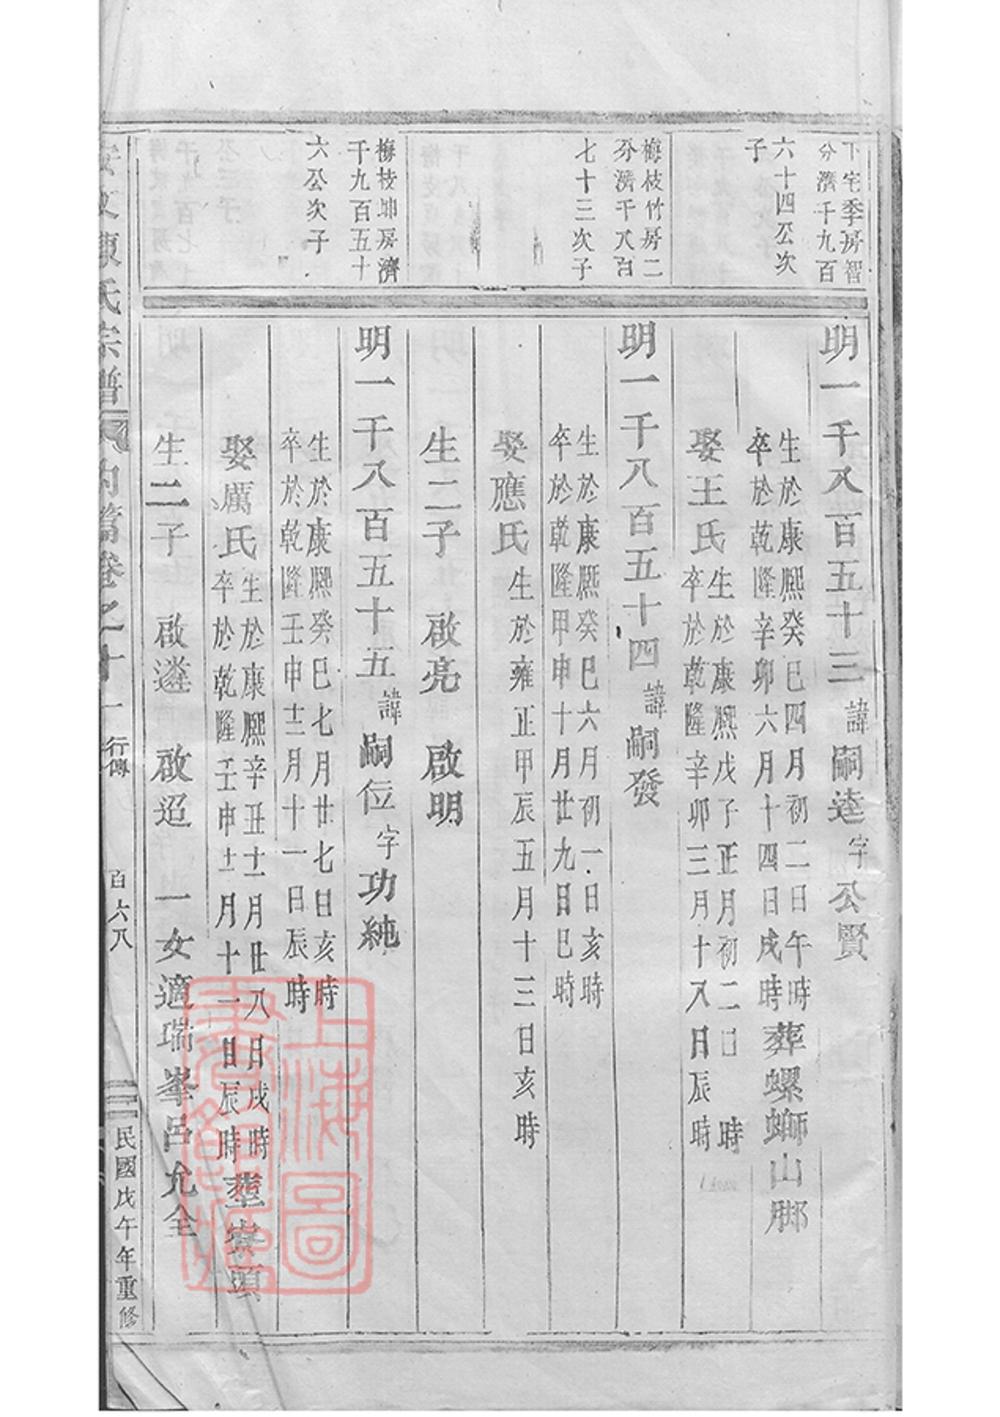 下宅季房智
分濟千九百
六十四公次
子
明一千八百五十三諱嗣逵字公賢
生於康熙癸巳四月初二日午時
卒於乾隆辛卯六月十四日戌時
葬螺螄山脚
娶王氏
生於康熙戊子正月初二日 時
卒於乾隆辛卯三月十八日辰時
梅枝竹房二
分濟千八百
七十三次子
明一千八百五十四諱嗣發
生於康熙癸巳六月初一日亥時
卒於乾隆甲申十月廿九日巳時
娶應氏生於雍正甲辰五月十三日亥時
生二子 啟亮 啟明
梅枝坤房濟
千九百五十
六公次子
明一千八百五十五諱嗣位字功純
生於康熙癸巳七月廿七日亥時
卒於乾隆壬申十二月十一日辰時
娶厲氏
生於康熙辛丑十一月廿八日戌時
卒於乾隆壬申十二月十一日辰時
葬寀頭
生二子 啟遴 啟迢 一女適瑞峯呂允全
安文陳氏宗譜 內篇卷之十一 行傳 百六八 民國戊午年重修
上海圖
書館藏